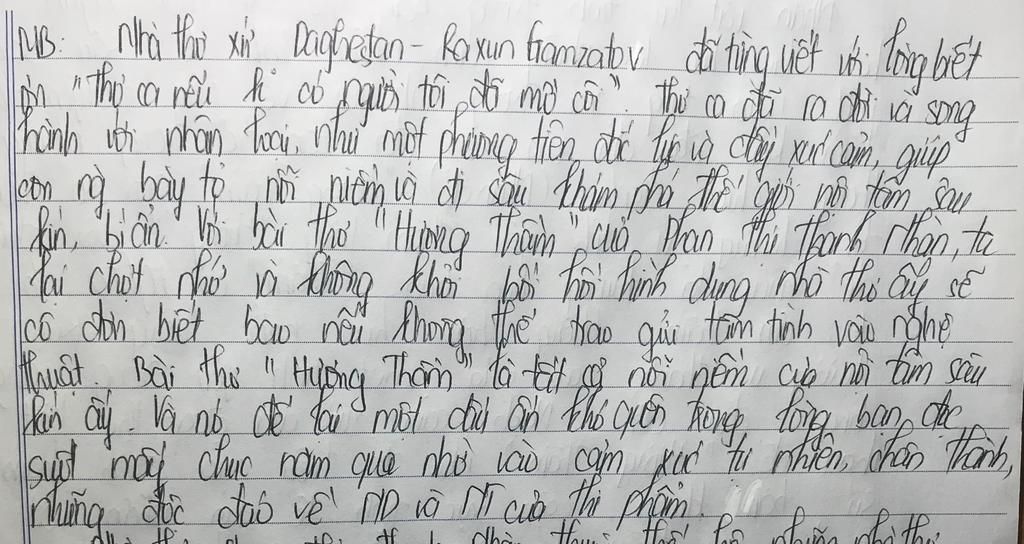 MB: Nhà thơ xứ Daghestan - Raxun Gamzatov đã từng viết với lòng biết
ơn "Thơ ca nếu k có người tôi đã mồ côi". Thơ ca đã ra đời và song
hành với nhân loại, như một phương tiện đắc lực và đầy xúc cảm, giúp
con ng bày tỏ nỗi niềm và đi sâu khám phá thế giới nội tâm sâu
kín, bí ẩn. Với bài thơ "Hương Thầm" của Phan Thị Thanh Nhàn, ta
lại chợt nhớ và không khỏi bồi hồi hình dung nhà thơ ấy sẽ
cô đơn biết bao nếu không thể trao gửi tâm tình vào nghệ
thuật. Bài thơ "Hương Thầm" là tất cả nỗi niềm của nội tâm sâu
kín ấy. Và nó để lại một dấu ấn khó quên trong lòng bạn đọc
suốt mấy chục năm qua nhờ vào cảm xúc tự nhiên, chân thành,
những độc đáo về ND và NT của thi phẩm.